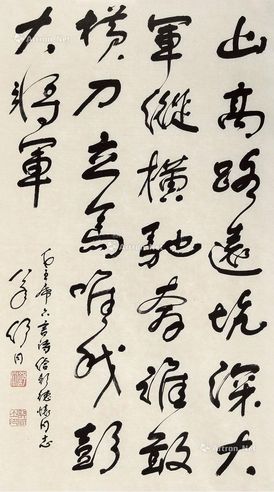 山高路远坑深大
軍縱橫馳奔誰敢
横刀立馬唯我彭
大将軍
毛主席六言诗给彭德懷同志
舒同